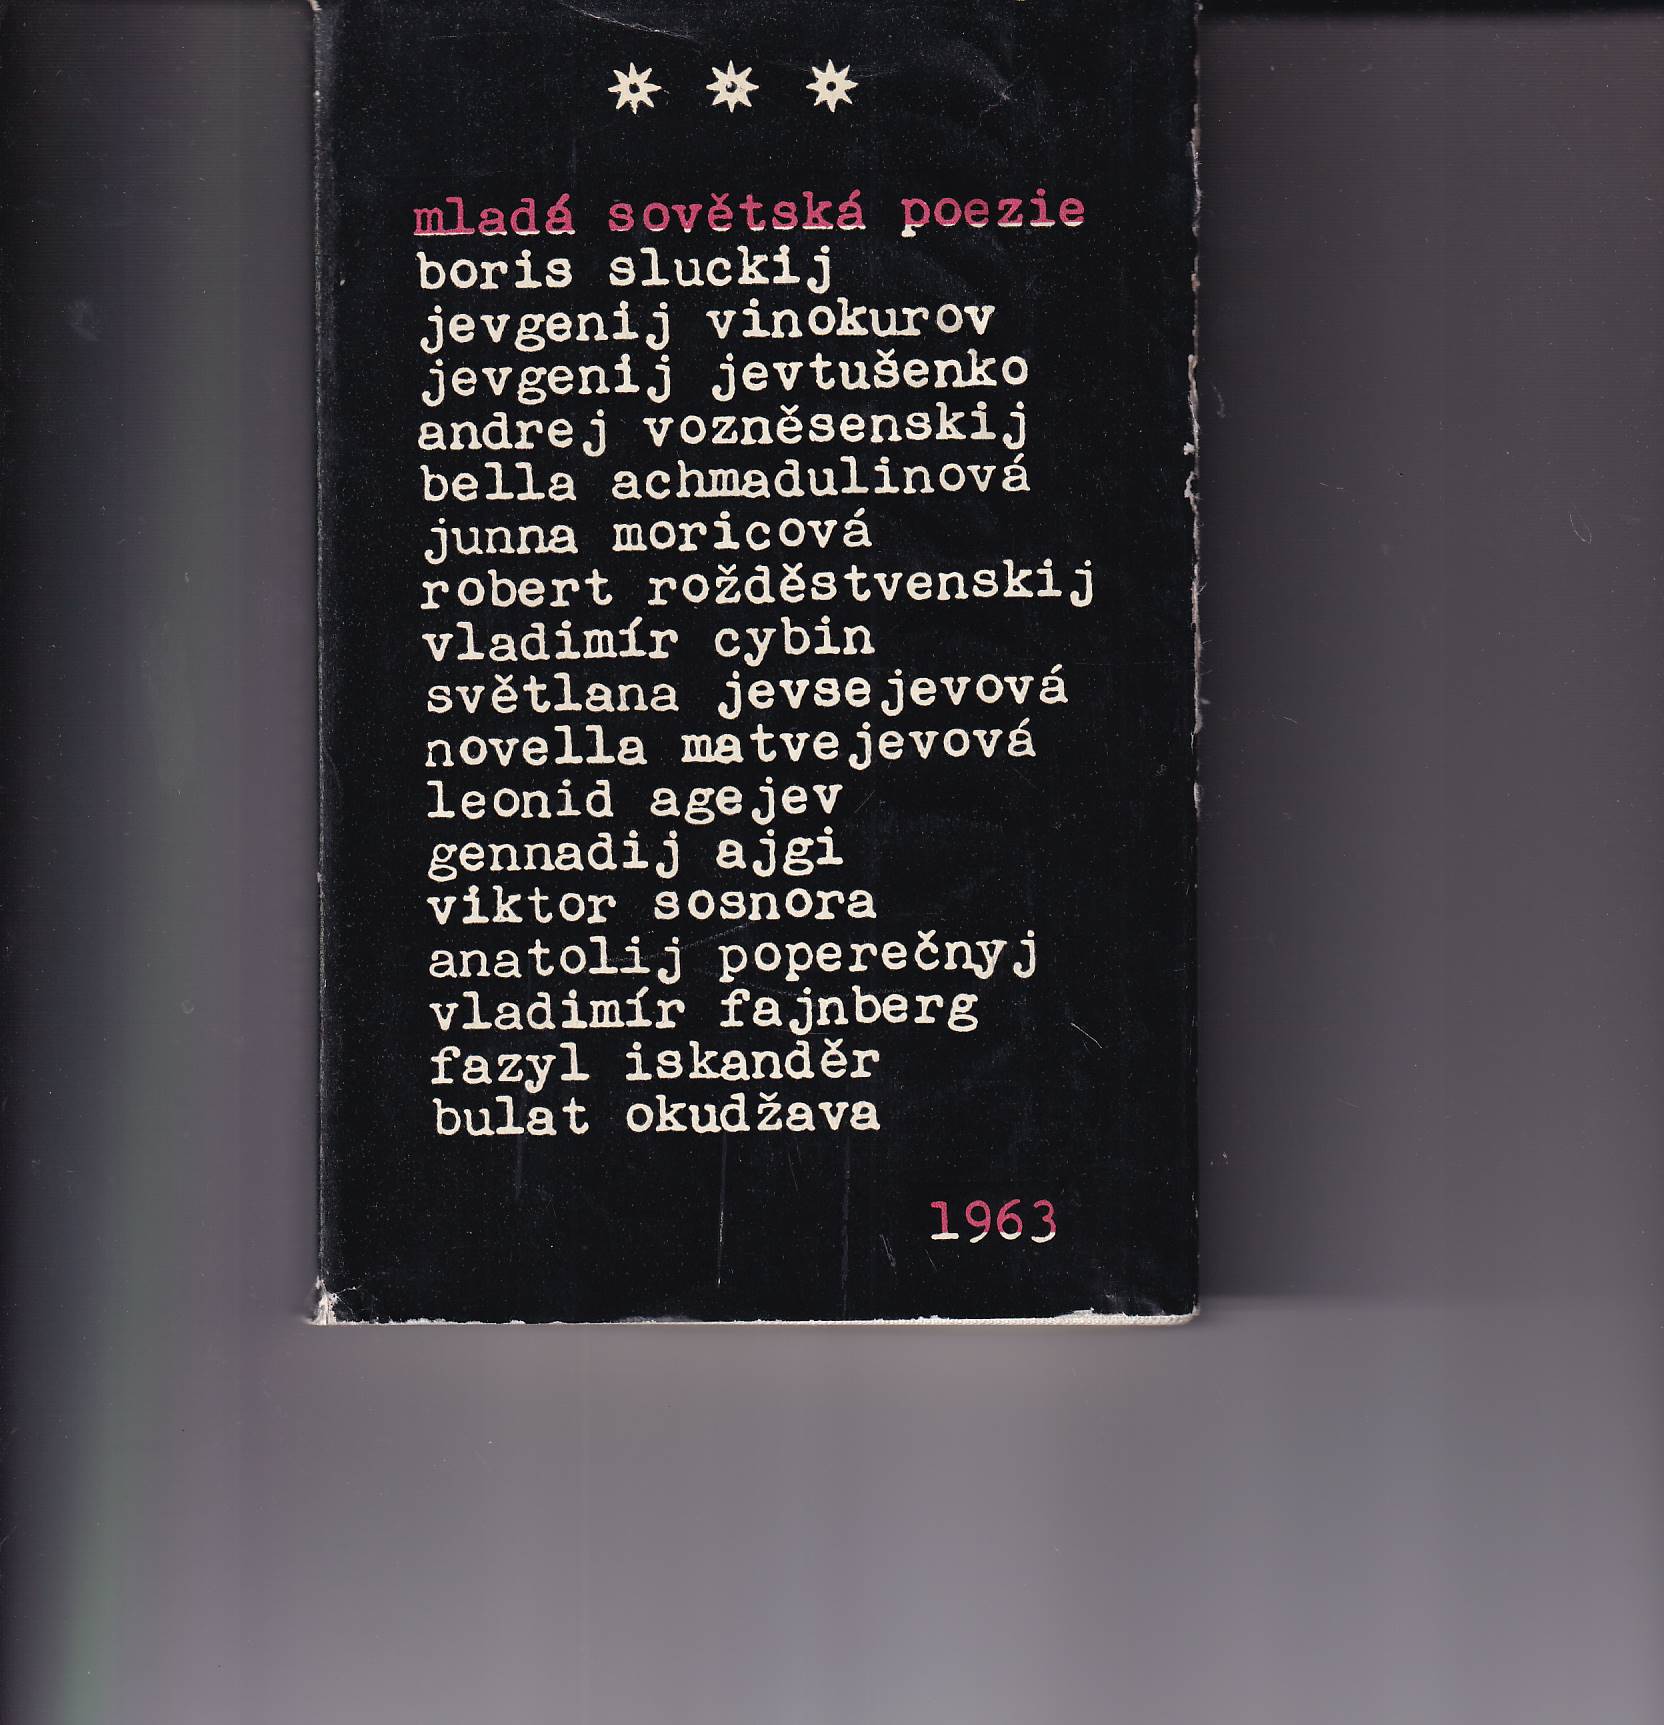 mladá sovětská poezie
boris sluckij
jevgenij vinokurov
jevgenij jevtušenko
andrej vozněsenskij
bella achmadulinová
junna moricová
robert rožděstvenskij
vladimír cybin
světlana jevsejevová
novella matvejevová
leonid agejev
gennadij ajgi
viktor sosnora
anatolij poperečnyj
vladimír fajnberg
fazyl iskanděr
bulat okudžava
1963